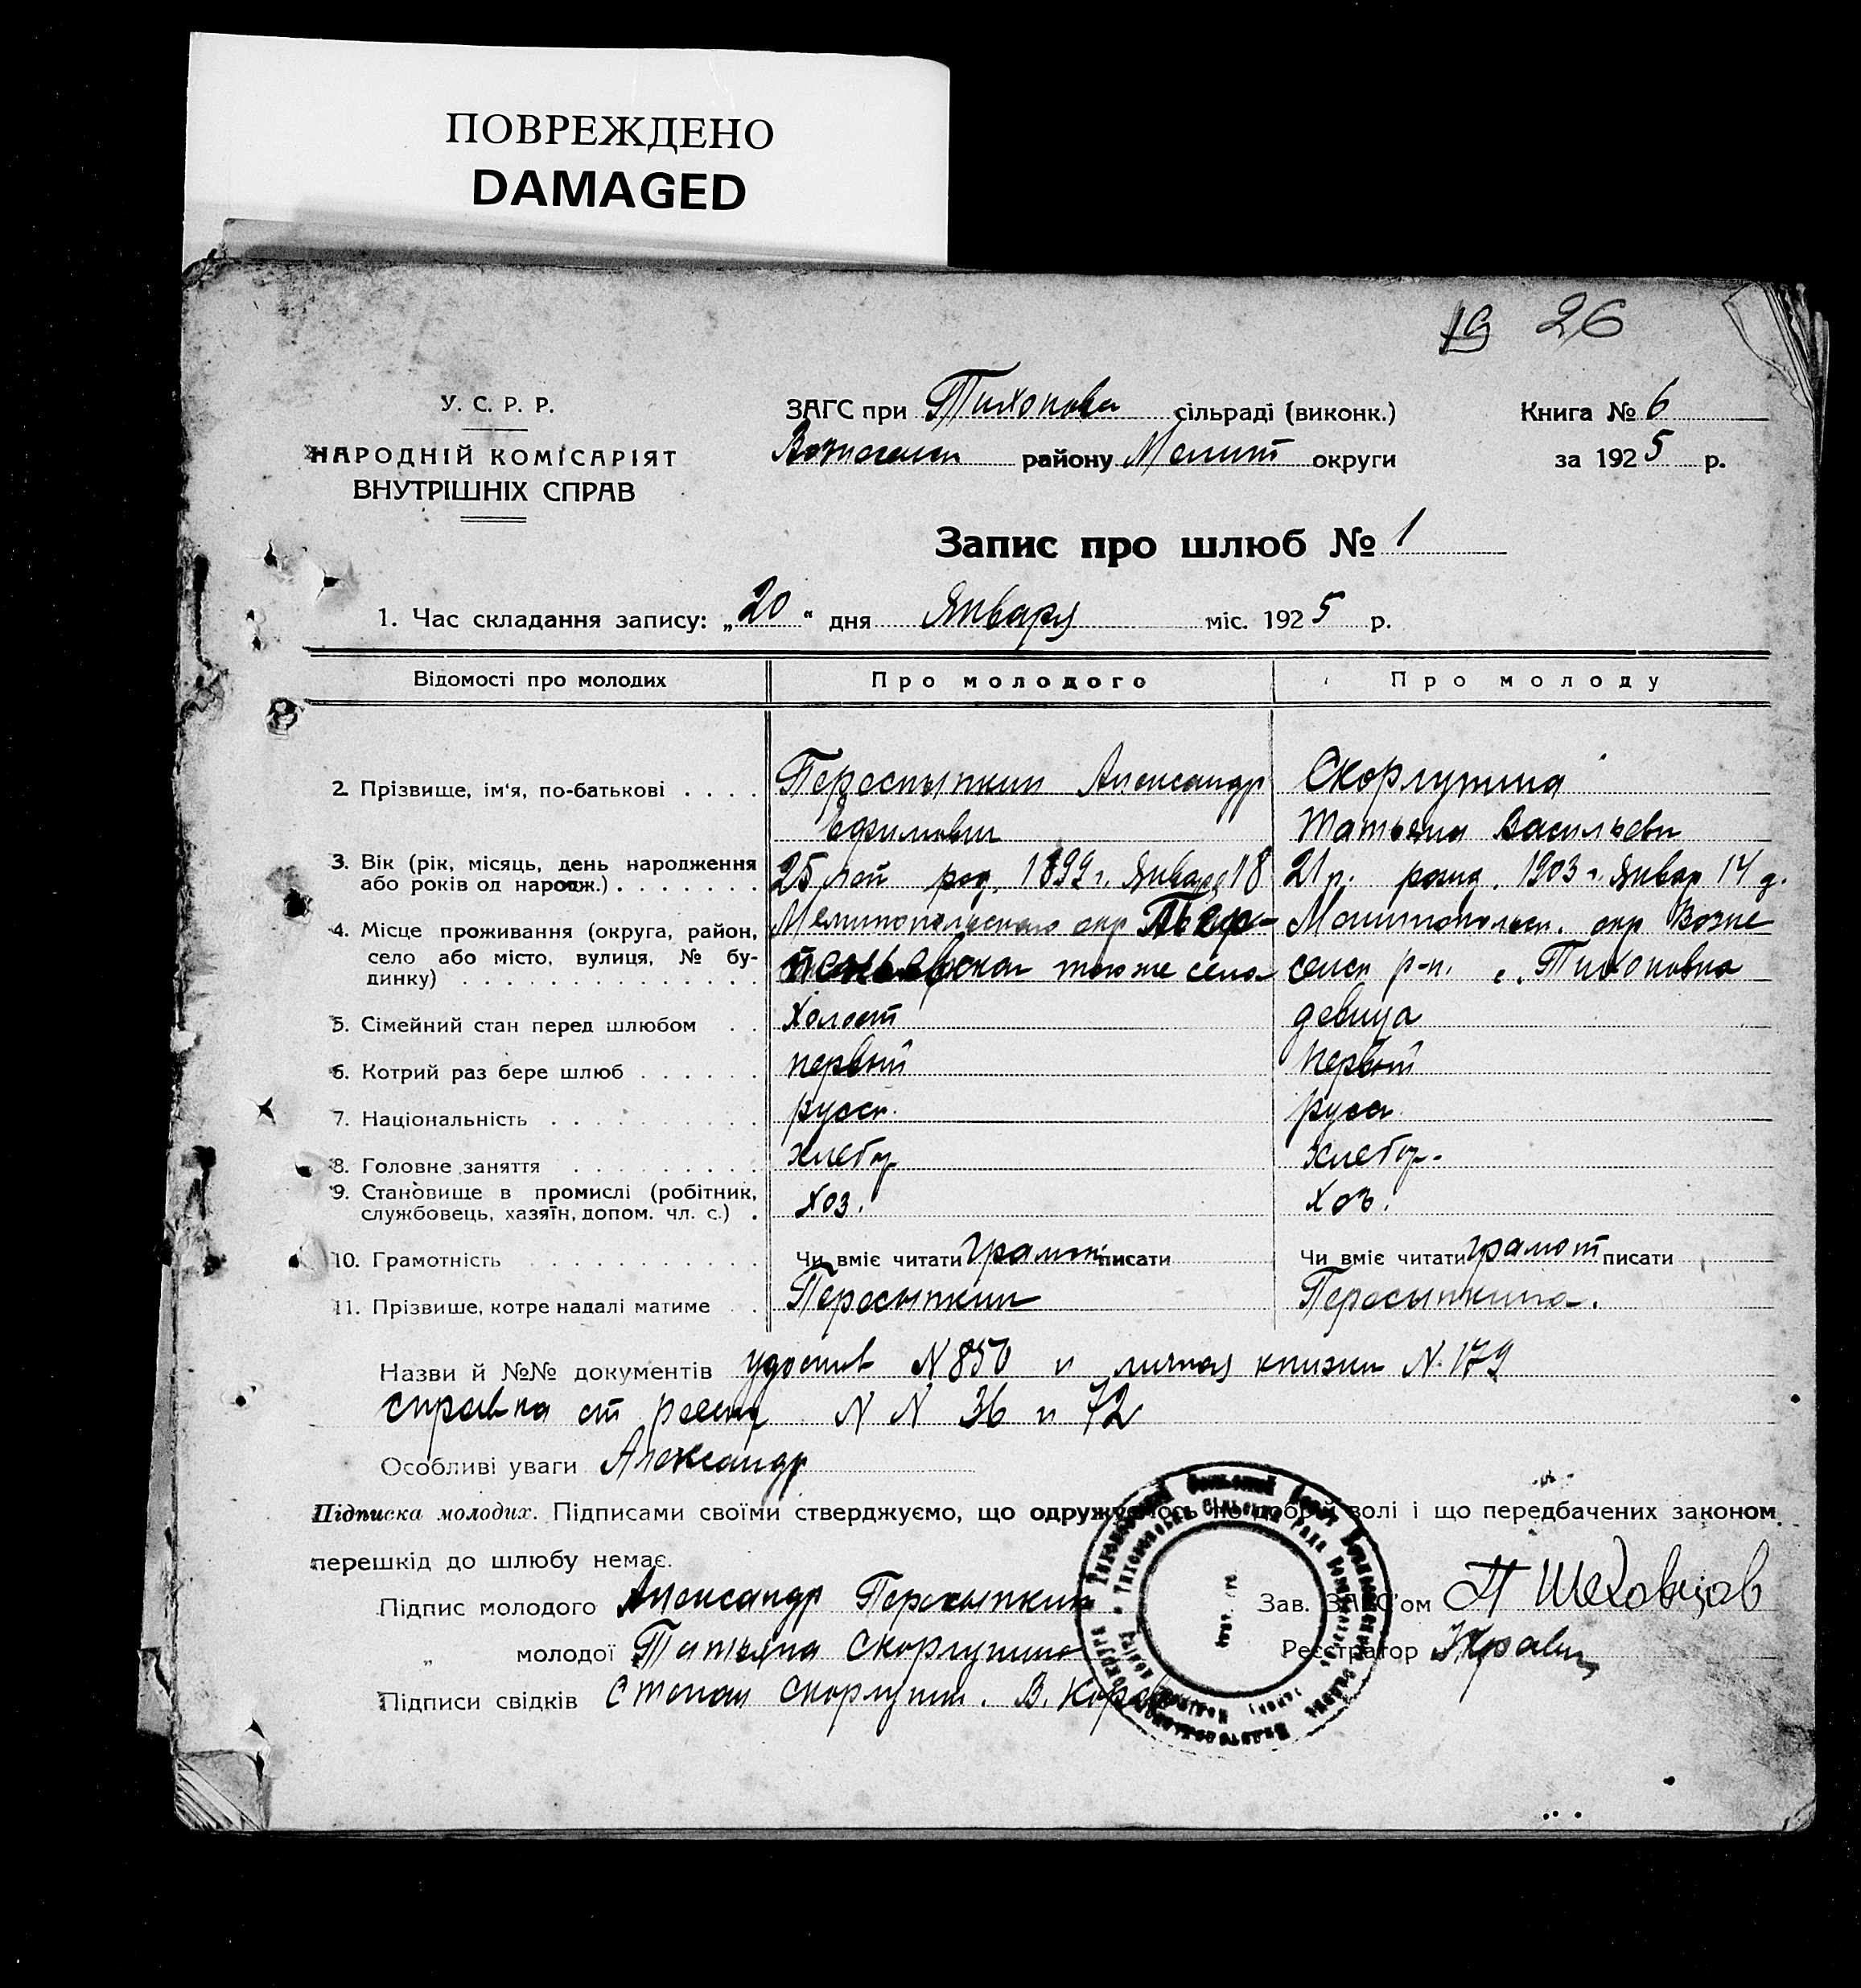 ПОВРЕЖДЕНО
DAMAGED
19 26
У. С. Р. Р.
НАРОДНІЙ КОМІСАРІЯТ
ВНУТРІШНІХ СПРАВ
ЗАГС при Тихонова сільраді (виконк.)
района Мелит округи
Книга № 6
за 1925 р.
Запис про шлюб № 1
1. Час складання запису: „20“ дня Января міс. 1925 р.
Відомості про молодих Про молодого Про молоду
2. Прізвище, ім'я, по-батькові . . . . Пересыпкин Александр Скорлупина
Ефимович Татьяна Васильевн
3. Вік (рік, місяць, день народження
або років од народж.) . . . . . . . 25 лет род. 1899 г. Января 18 21 л. рожд. 1903 г. Январ 14 д.
4. Місце проживання (округа, район,
село або місто, вулиця, № бу-
динку) . . . . . . . . . . . . . .
Мелитопольского окр Мелитопольск. окр Возне
тоже села сенск р-н. с. Тихоновка
5. Сімейний стан перед шлюбом . . Холост девица
6. Котрий раз бере шлюб . . . . . . первый первый
7. Національність . . . . . . . . . . русск. русск
8. Головне заняття . . . . . . . . . хлебор хлебор.
9. Становище в промислі (робітник,
службовець, хазяїн, допом. чл. с.) . хоз. хоз.
10. Грамотність . . . . . . . . . . . Чи вміє читати грамот писати Чи вміє читати грамот писати
11. Прізвище, котре надалі матиме . . Пересыпкин Пересыпкина.
Назви й №№ документів удостов N 850 и личная книжки N. 179
справка от N N 36 и 72
Особливі уваги Александр
Підписка молодих. Підписами своїми стверджуємо, що одружуємось по добрій волі і що передбачених законом
перешкід до шлюбу немає.
Підпис молодого Александр Пересыпкин
Зав. ЗАГС'ом П Шеховцов
„ молодої Татьяна Скорлупина
Реєстратор
Підписи свідків Степан Скорлупин. В.